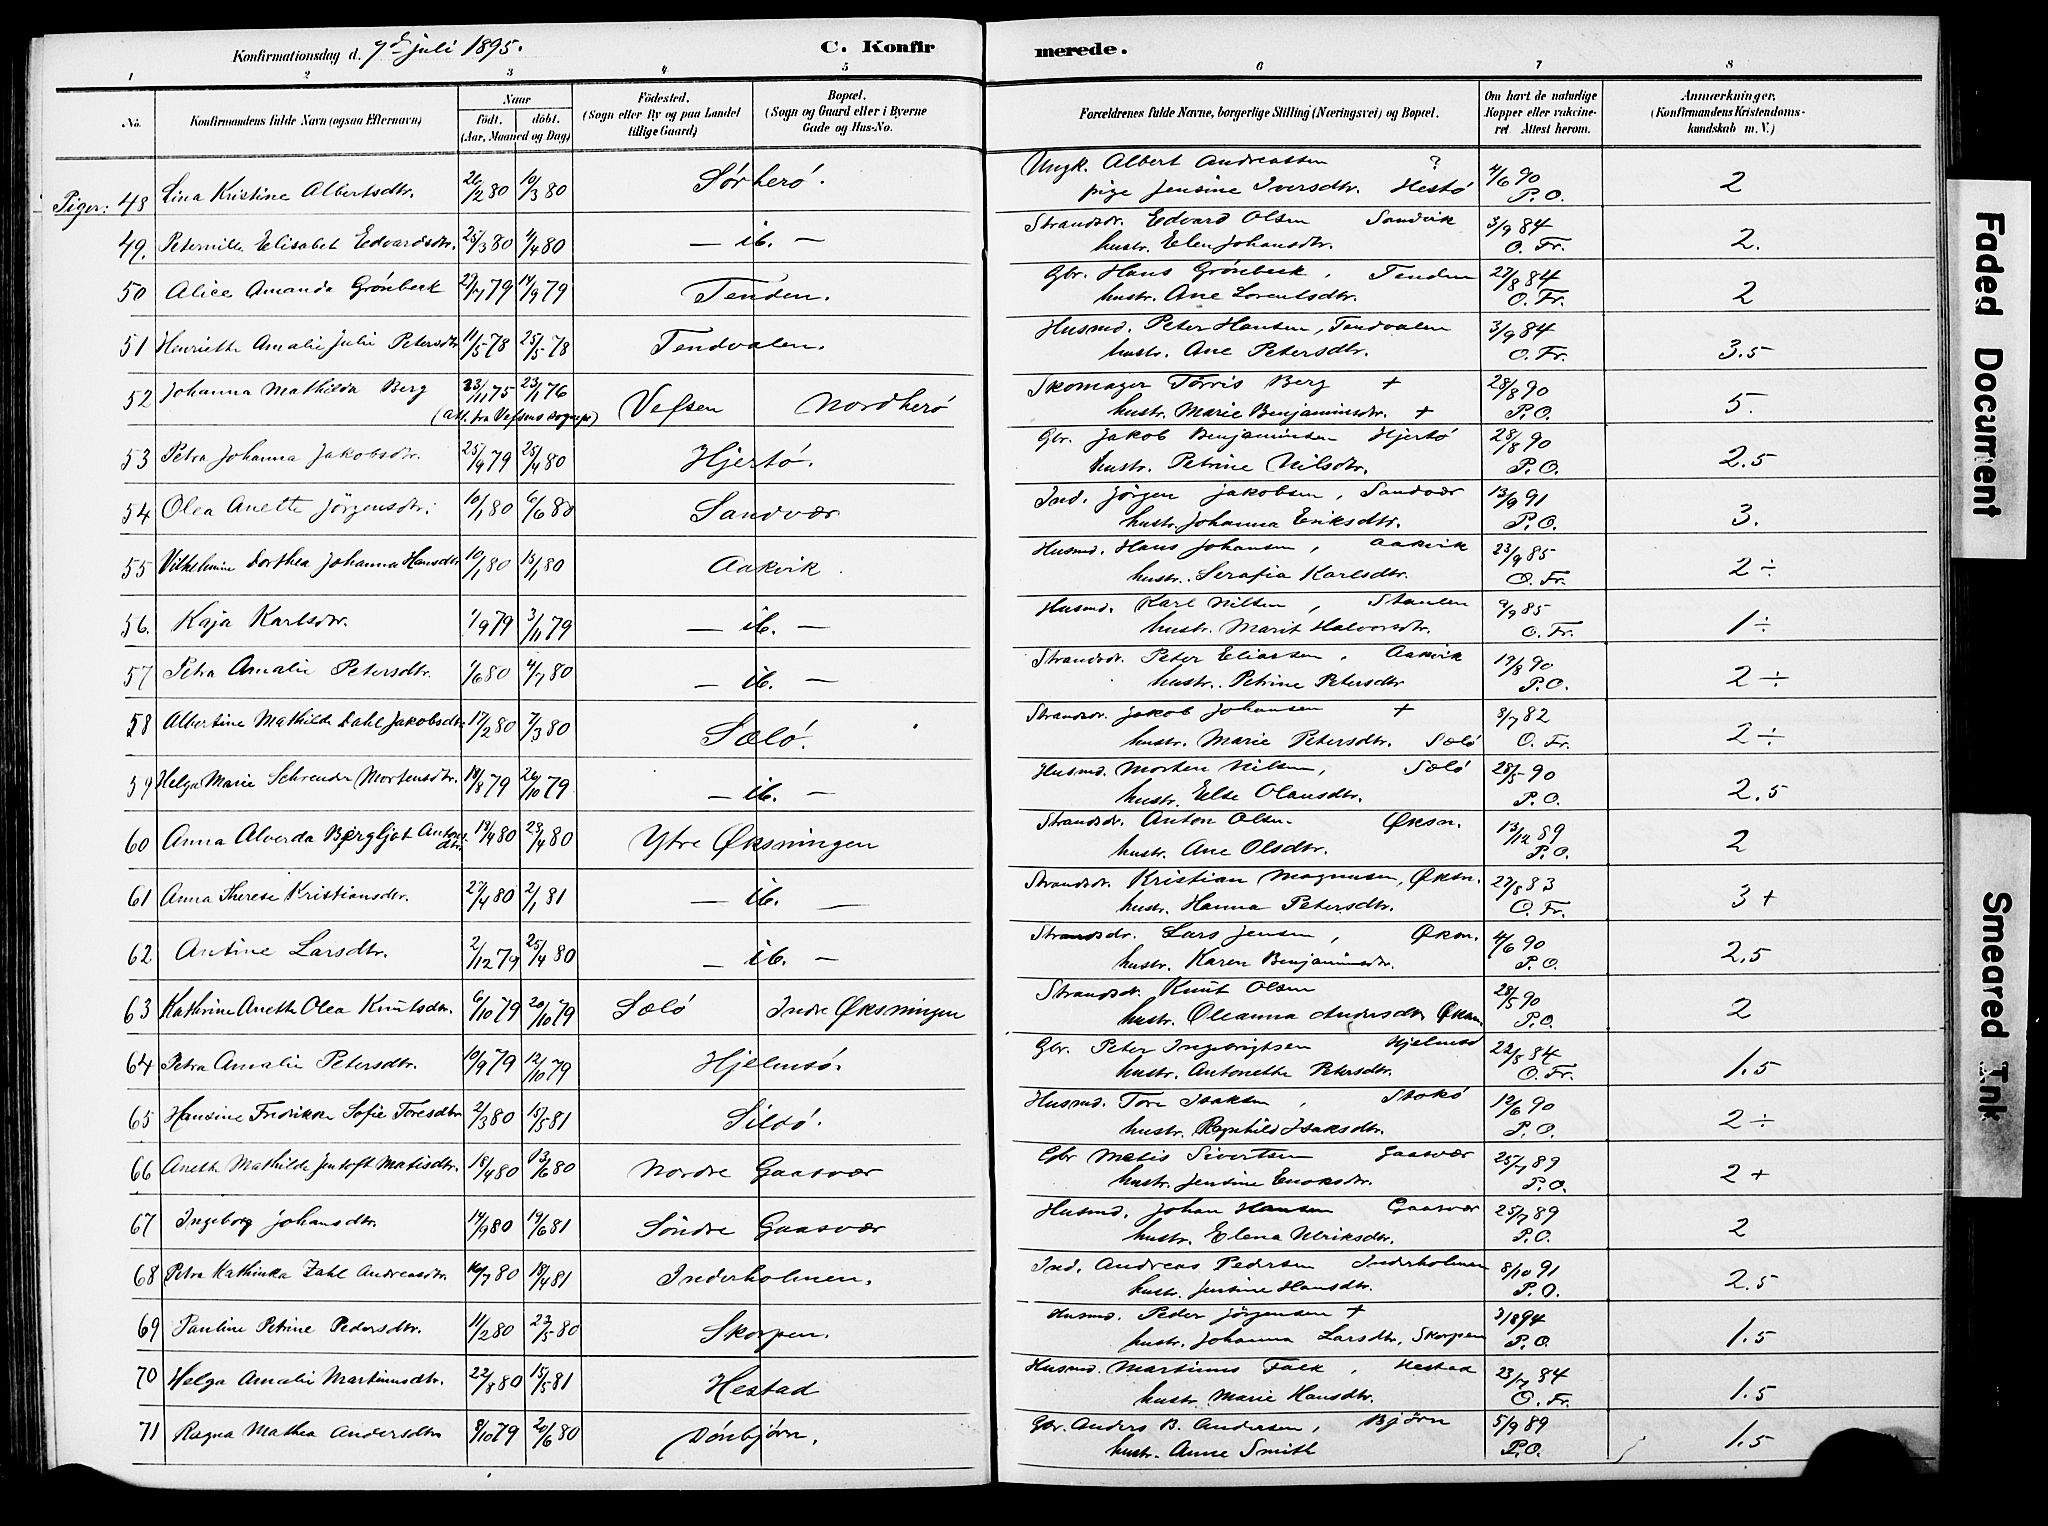 Konfirmationsdag d. 7de juli 1895.
C. Konfirmerede.
1 2 3 4 5 6 7 8
No. Konfirmandens fulde Navn (ogsaa Efternavn) Naar født. døbt. (Aar, Maaned og Dag) Fødested. (Sogn eller By og paa Landet tillige Gaard) Bopæl. (Sogn og Gaard eller i Byerne Gade og Hus-No. Forældrenes fulde Navne, borgerlige Stilling (Næringsvei) og Bopæl. Om havt de naturlige Kopper eller vakcineret. Attest herom. Anmærkninger. (Konfirmandens Kristendomskundskab m. V.)
Piger: 48 Lina Kristine Albertsdtr. 26/2 80 10/3 80 Sørherø. Ungk. Albert Andreassen ? 4/6 90 2
pige Jensine Iversdtr. Hestø P.O.
49. Peternille Elisabet Edvardsdtr. 25/3 80 4/4 80 — ib. — Strandsdr. Edvard Olsen Sandvik 3/9 84 2.
hustr. Elen Johansdtr. O. Fr.
50 Alice Amanda Grønbeck 29/7 79 14/9 79 Tenden. Gbr. Hans Grønbeck, Tenden 27/8 84 2
hustr. Ane Lorentsdtr. O. Fr.
51 Henriette Amalie Julie Petersdtr 11/5 78 25/5 78 Tendvalen. Husmd. Peter Hansen, Tendvalen 3/9 84 3.5
hustr. Ane Petersdtr. O. Fr.
52 Johanna Mathilda Berg 23/11 75 23/1 76 Vefsen Nordherø Skomager Torris Berg + 28/8 90 5.
(att. fra Vefsens sognepr) hustr. Marie Benjaminsdtr. + P.O.
53 Petra Johanna Jakobsdtr. 25/9 79 25/4 80 Hjertø. Gbr. Jakob Benjaminsen Hjertø 28/8 90 2.5
hustr. Petrine Nilsdtr. P.O.
54 Olea Anette Jørgensdtr. 10/1 80 6/6 80 Sandvær Ind. Jørgen Jakobsen, Sandvær 13/9 91 3.
hustr. Johanna Eriksdtr. P.O.
55 Vilhelmine Dorthea Johanna Hansdtr 10/1 80 13/1 80 Aakvik. Husmd. Hans Johansen, Aakvik 23/9 85 2 ÷
hustr. Serafia Karlsdtr. O. Fr.
56. Kaja Karlsdtr. 1/9 79 3/11 79 — ib. — Husmd. Karl Nilsen, Staulen 9/9 85 1 ÷
hustr. Marit Halvorsdtr. O. Fr.
57 Petra Amalie Petersdtr. 1/6 80 4/7 80 — ib. — Strandsdr. Peter Eliassen, Aakvik 13/8 90 2 ÷
hustr. Petrine Petersdtr P.O.
58 Albertine Mathilde Dahl Jakobsdtr. 17/2 80 7/3 80 Sælø. Strandsdr. Jakob Johansen + 8/7 82 2 ÷
hustr. Marie Petersdtr. Sælø O. Fr.
59 Helga Marie Schrender Mortensdtr. 14/8 79 26/10 79 — ib. — Husmd. Morten Nilsen, Sælø 28/5 90 2.5
hustr. Else Olausdtr. P.O.
60 Anna Alverda Bergljot Antonsdtr. 19/4 80 29/4 80 Ytre Øksningen Strandsdr. Anton Olsen Øksn. 13/12 89 2
hustr. Ane Olsdtr. P.O.
61 Anna Therese Kristiansdtr. 27/4 80 2/1 81 — ib. — Strandsdr. Kristian Magnusen, Øksn. 27/8 83 3 +
hustr. Hanna Petersdtr. O. Fr.
62 Antine Larsdtr. 2/12 79 25/4 80 — ib. — Strandsdr. Lars Jensen, Øksn. 4/6 90 2.5
hustr. Karen Benjaminsdtr. P.O.
63 Kathrine Anette Olea Knutsdtr. 6/10 79 20/10 79 Sælø Indre Øksningen Strandsdr. Knut Olsen 28/5 90 2
hustr. Oleanna Andersdtr Øksn. P.O.
64 Petra Amalie Petersdtr. 10/9 79 12/10 79 Hjelmsø. Gbr. Peter Ingebrigtsen Hjelmsø 22/8 84 1.5
hustr. Antonette Petersdtr. O. Fr.
65 Hansine Fredrikke Sofie Toresdtr 2/3 80 15/5 81 Sildø. Husmd. Tore Isaksen, Stokø 12/6 90 2 ÷
hustr. Ragnhild Isaksdtr. P.O.
66 Anette Mathilde Jentoft Matisdtr. 18/4 80 13/6 80 Nordre Gaasvær Gbr Matis Sivertsen Gaasvær 25/7 89 2 +
hustr. Jensine Enoksdtr. P.O.
67 Ingeborg Johansdtr. 14/9 80 19/6 81 Søndre Gaasvær Husmd. Johan Hansen Gaasvær 25/7 89 2
hustr. Elena Ulriksdtr. P.O.
68 Petra Kathinka Zahl Andreasdtr. 16/7 80 18/4 81 Inderholmen. Ind. Andreas Pedersen Inderholmen 8/10 91 2.5
hustr. Jensine Hansdtr. P.O.
69 Pauline Petrine Pedersdtr. 11/2 80 23/5 80 Skorpen. Husmd. Peder Jørgensen + 3/8 94 1.5
hustr. Johanna Larsdtr, Skorpen P.O.
70 Helga Amalie Martinusdtr. 22/8 80 15/5 81 Hestad Husmd. Martinus Falk, Hestad 23/7 84 1.5
hustr. Marie Hansdtr. O. Fr.
71 Ragna Mathea Andersdtr 8/10 79 20/6 80 Dønbjørn. Gbr. Anders B. Andersen, Bjørn 5/9 89 1.5
hustr. Anne Smith P.O.
Faded Document
Smeared Ink